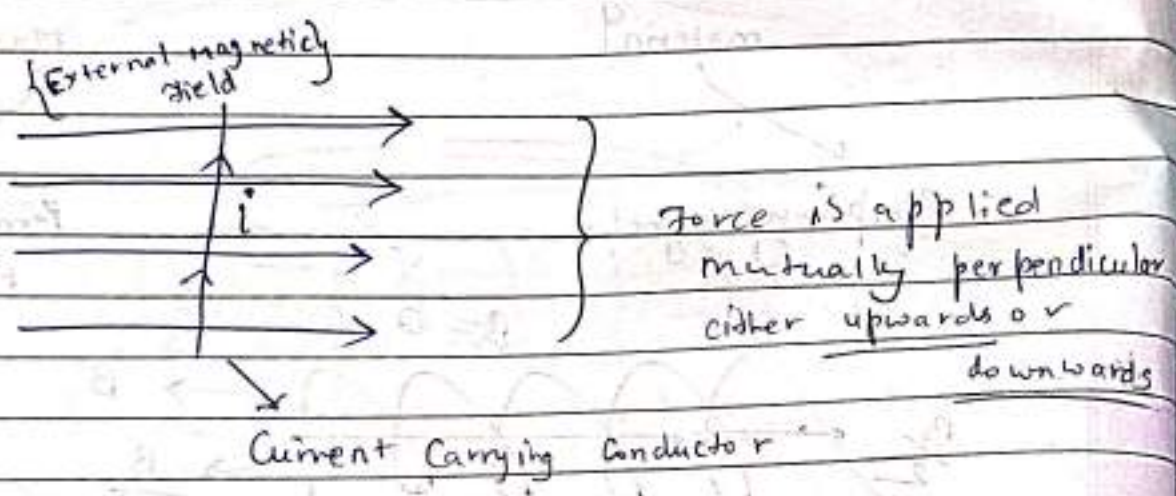 {External magnetic}
Field
i
Force is applied
mutually perpendicular
either upwards or
downwards
Current Carrying Conductor